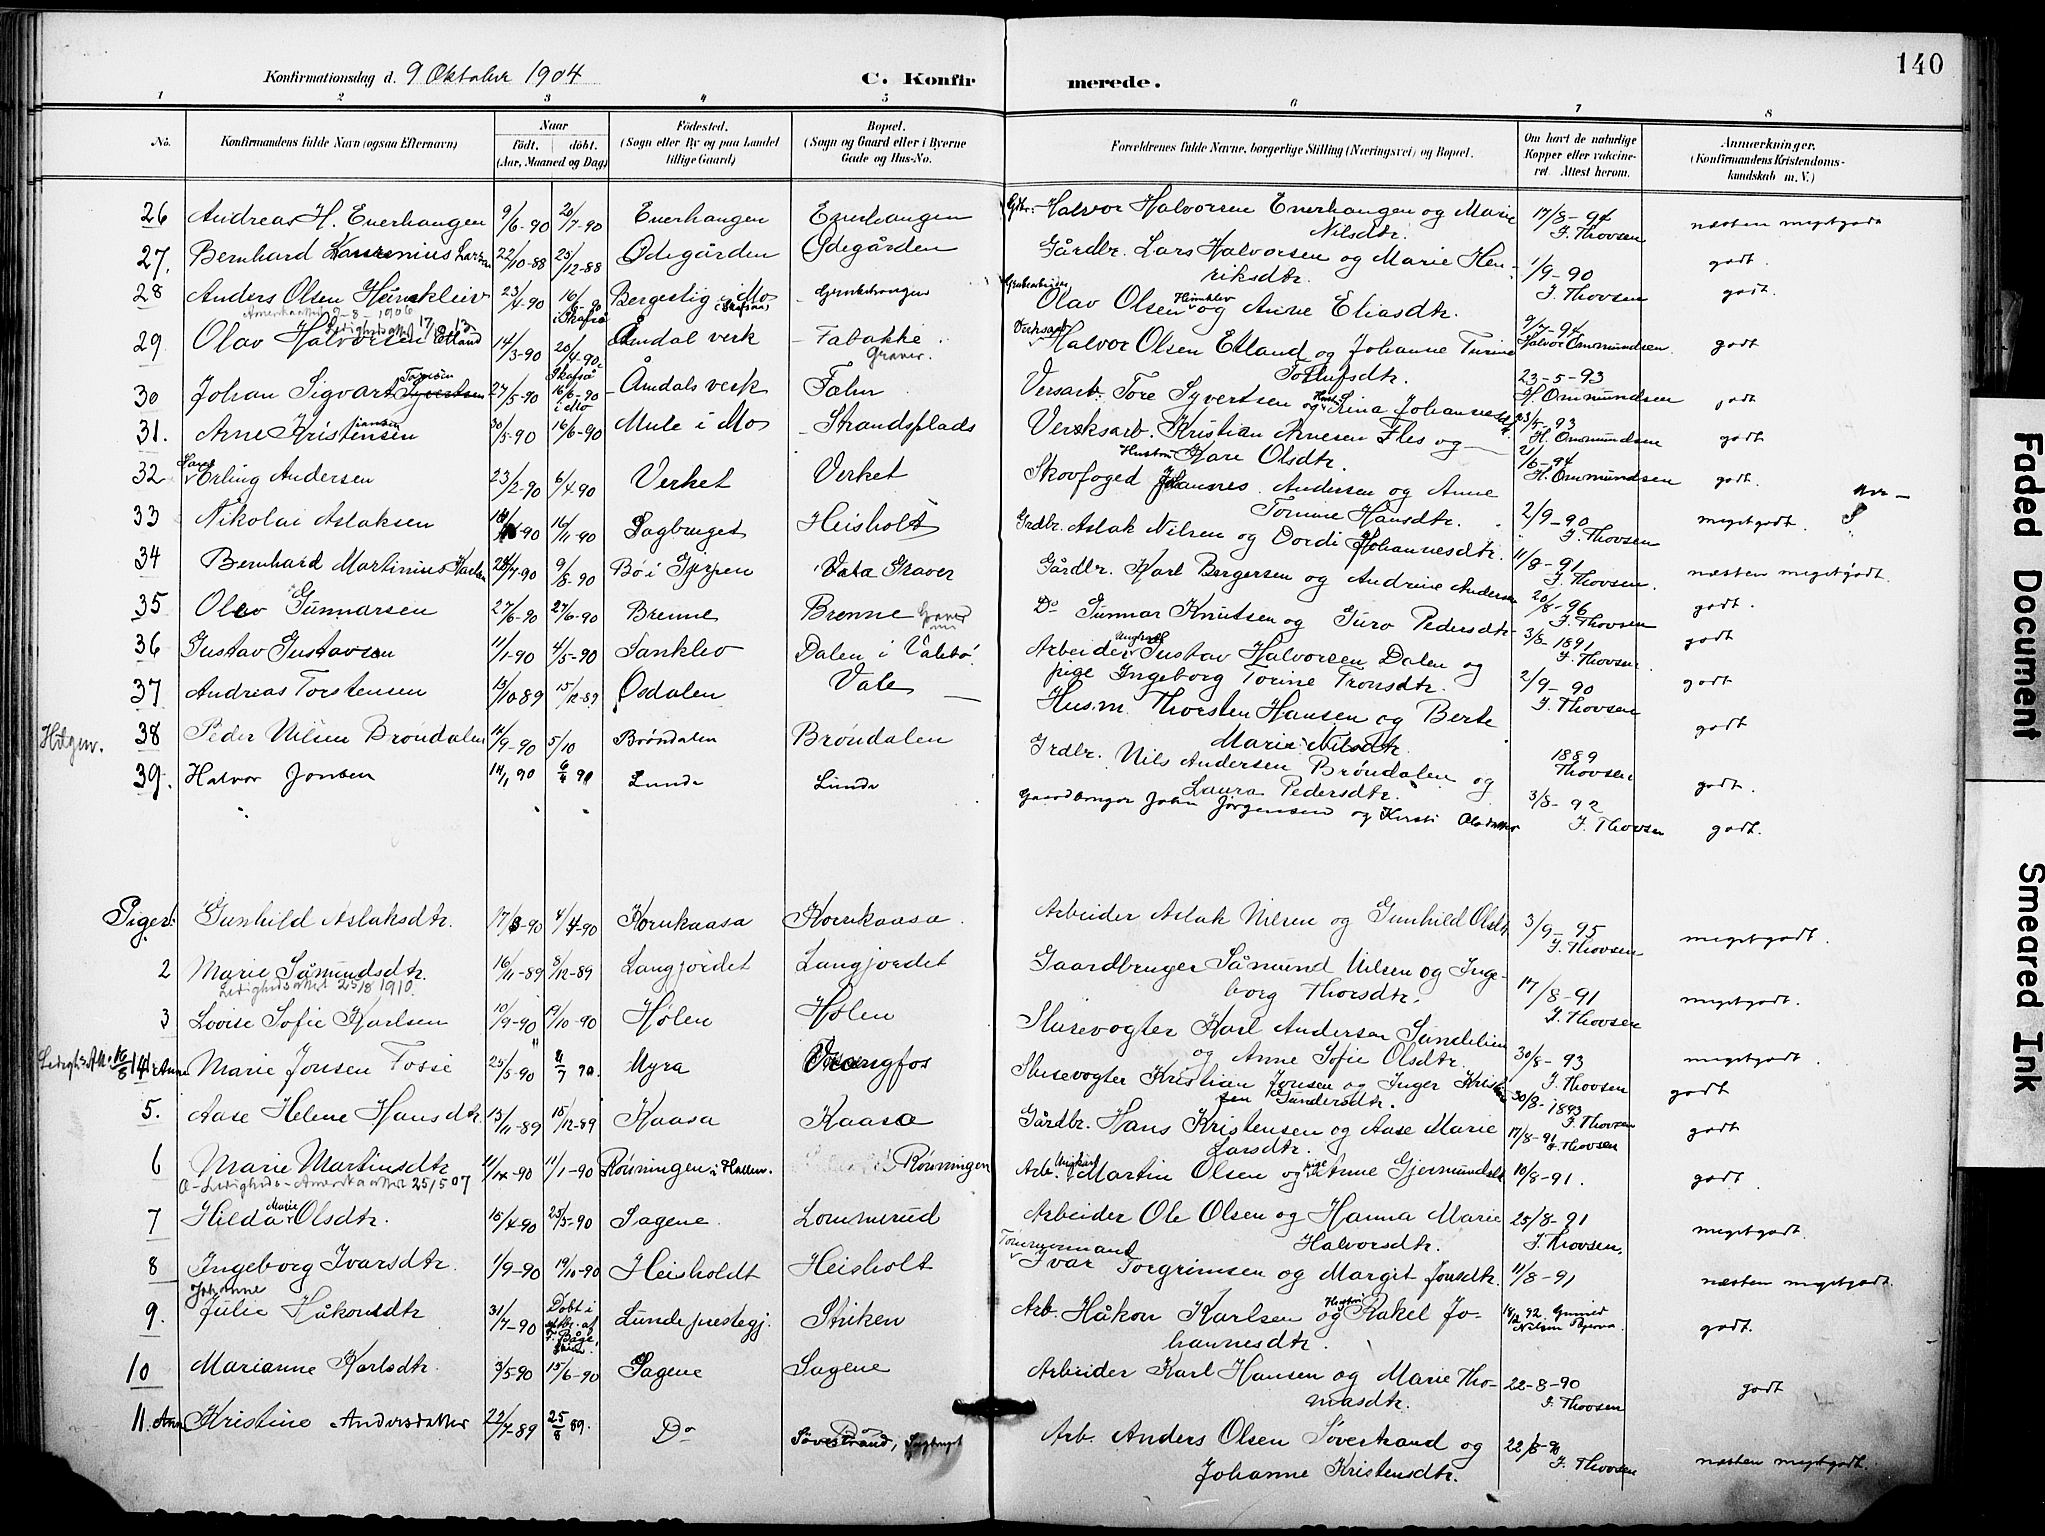 140
Konfirmationsdag d. 9 Oktober 1904 C. Konfirmerede.
1 2 3 4 5 6 7 8
No. Konfirmandens fulde Navn (ogsaa Efternavn) Naar født. døbt. (Aar, Maaned og Dag) Fødested. (Sogn eller By og paa Landet tillige Gaard) Bopæl. (Sogn og Gaard eller i Byerne Gade og Hus-No. Forældrenes fulde Navne, borgerlige Stilling (Næringsvei) og Bopæl. Om havt de naturlige Kopper eller vakcineret. Attest herom. Anmærkninger. (Konfirmandens Kristendomskundskab m. V.)
26 Andreas H. Enerhaugen 9/6-90 20/7-90 Enerhaugen Enerhaugen Halvor Halvorsen Enerhaugen og Marie Nilsdtr. 17/8-94 J. Thovsen næsten megetgodt
27. Bernhard Laurenius Larsen 22/10-88 25/12-88 Ødegården Ødegården Gårdbr. Lars Halvorsen og Marie Henriksdtr. 1/9-90 J. Thovsen godt.
28 Anders Olsen 23/4-90 16/8-90 i Skafså Bergestig i Mo (Skafså) Grubearbeider Olav Olsen og Anne Eliasdtr. 9/7-94 Halvor Ommundsen godt.
29 Olav Halvorsen Etland 14/3-90 20/4-90 Skafså Åmdal verk Fabakke Graver. Verksarb. Halvor Olsen Etland og Johanne Turine Tollufsdtr. 23-5-93 H. Ommundsen godt
30 Johan Sigvart Toresen Syvertsen 27/5-90 16/6-90 i Mo Åmdals verk Versarb. Tore Syvertsen og Hust. Lina Johannesdtr. 23/5-93 H. Ommundsen godt
31. Arne Kristensen iansen 30/5-90 16/6-90 Mule i Mo Strandsplads Verksarb. Kristian Arnesen Fles og Hustru Kare Olsdtr. 21/6-94 H. Ommundsen godt
32 Erling Andersen 23/2-90 6/4-90 Verket Verket Skovfoged Johannes Andersen og Anne Tomine Hansdtr. 2/9-90 J. Thovsen godt.
33 Nikolai Aslaksen 16/11-90 Sagbruget Heisholt Grdbr. Aslak Nilsen og Dordi Johannesdtr. 11/8-91 J. Thovsen megetgodt.
34 Bernhard Martinius Karlsen 28/7-90 9/8-90 Bø i Gjerpen Vala Graver Gårdbr. Karl Bergersen og Andrine Andersen 20/8-96 J. Thovsen næsten megetgodt.
35 Olav Gunnarsen 27/6-90 27/6-90 Brenne Brenne Graver Do Gunnar Knutsen og Guro Pedersdtr 3/8-1891 J. Thovsen godt.
36 Gustav Gustavsen 11/1-90 4/5-90 Sanklev Dalen i Valebø Arbeider Ungkarl Gustav Halvorsen Dalen og pige Ingeborg Torine Tronsdtr. 2/9-90 J. Thovsen godt
37 Andreas Torstensen 13/10 89 15/12-89 Øsdalen Vale Husm. Thorsten Hansen og Berte Marie Nilsdtr. godt
Hilgen. 38 Peder Nilsen Brøndalen 11/9-90 5/10 Brøndalen Brøndalen Grdbr. Nils Andersen Brøndalen og Laura Pedersdtr. 1889 Thovsen godt
39. Halvor Jonsen 14/1 90 6/4 90 Lunde Lunde Gaardbruger John Jørgensen og Kirsti Olsdatter 3/8-92 J. Thovsen godt.
godt.
Piger. Gunhild Aslaksdtr. 17/3-90 4/4-90 Kornkaasa Kornkaasa Arbeider Aslak Nilsen og Gunhild Olsdtr 3/9-95 J. Thovsen megetgodt.
2 Marie Såmundsdtr. Ledighedsattest 25/8 1910. 16/11-89 8/12-89 Langjordet Langjordet Gaardbruger Såmund Nilsen og Ingeborg Thorsdtr. 17/8-91 J. Thovsen megetgodt.
3 Lovise Sofie Karlsen 10/9-90 19/10-90 Hølen Hølen Slusevogter Karl Andersen Sundelien og Anne Sofie Olsdtr. 30/8-93 J. Thovsen megetgodt.
Ledighs.Att. 16/8 14 4 Anne Marie Jonsen Fosse 25/5-90 7 90 Myra Vrangfos Slusevogter Kristian Jonsen og Inger Kristensen Gundersdtr. 30/8-1893 J. Thovsen godt
5. Aase Helene Hansdtr. 13/11-89 15/12-89 Kaasa Kaasa Gårdbr. Hans Kristensen og Aase Marie Larsdtr. 17/8-91 J. Thovsen godt
6 Marie Martinsdtr. O-Ledigheds-Amerikaattest 25/5 07 11/1-90 Rønningen i Hallen. Rønningen Arb. Ungkarl Martin Olsen og pige Anne Gjermundsdtr 10/8-91. godt
7 Hilda Marie Olsdtr. 15/4-90 25/5-90 Sagene. Lommerud Arbeider Ole Olsen og Hanna Marie Halvorsdtr. 25/8-91 J. Thovsen. megetgodt.
8 Ingeborg Ivarsdtr. 1/9-90 19/10-90 Heisholdt Heisholt Tømmermand Ivar Torgrimsen og Margit Jonsdtr. 11/8-91 næsten megetgodt.
9. Johanne Julie Håkonsdtr 31/7-90 Døbt i Lunde prestegj. Striken Arb. Håkon Karlsen og Hustru Rakel Johannesdtr. 92 godt.
10 Marianne Karlsdtr. 3/5-90 15/6-90 Sagene Sagene Arbeider Karl Hansen og Marie Thomasdtr. 22-8-90 J. Thovsen godt
11. Anne Kristine Andersdatter 22/7-89 25/8 89. Do Søvestrand, Sagbruget Arb. Anders Olsen Søvestrand og Johanne Kristensdtr. 22/8-90 J. Thovsen næsten megetgodt.
Faded Document
Smeared Ink